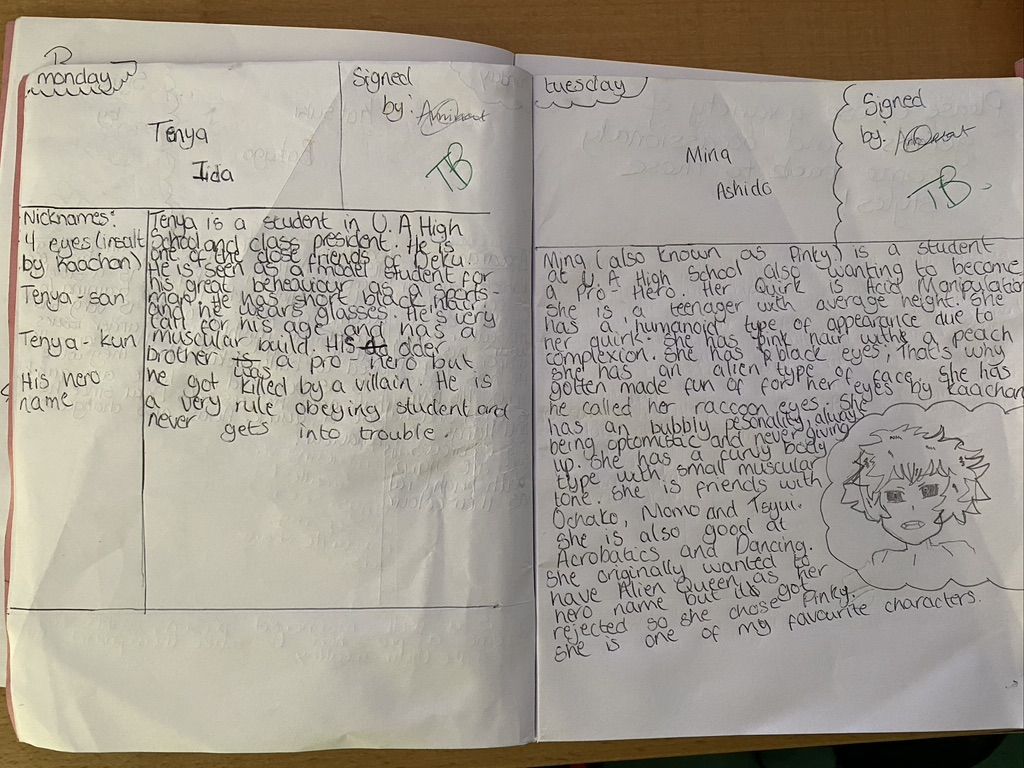 monday
Signed
by:
TB
Tenya
Iida
Nicknames:
4 eyes (insalt
by Kaachan)
Tenya-san
Tenya-kun
His hero
name
Tenya is a student in U.A High
School and class president. He is
one of the close friends of Deku.
He is seen as a model student for
his great beheaviour as a sports-
man. He has short black hear
and he wears glasses. He's very
tall for his age and has a
muscular build. His older
brother was a pro hero but
he got killed by a villain. He is
a very rule obeying student and
never gets into trouble.
tuesday
Signed
by:
TB.
Mina
Ashido
Mina (also known as Pinky) is a student
at U.A High School also wanting to become
a Pro-Hero. Her Quirk is Acid Manipulation
She is a teenager with average height. She
has a humanoid type of appearance due to
her quirk. She has pink hair with a peach
complexion. She has black eyes, That's why
she has an alien type of face. She has
gotten made fun of for her eyes by Kaachan
he called her raccoon eyes. She
has an bubbly pesonality, always
being optomistic and never giving
up. She has a curvy body
type with small muscular
tone. She is friends with
Ochako, Momo and Tsyui.
She is also good at
Acrobatics and Dancing.
She originally wanted to
have Alien Queen as her
hero name but it got
rejected so she chose Pinky.
She is one of my favourite characters.